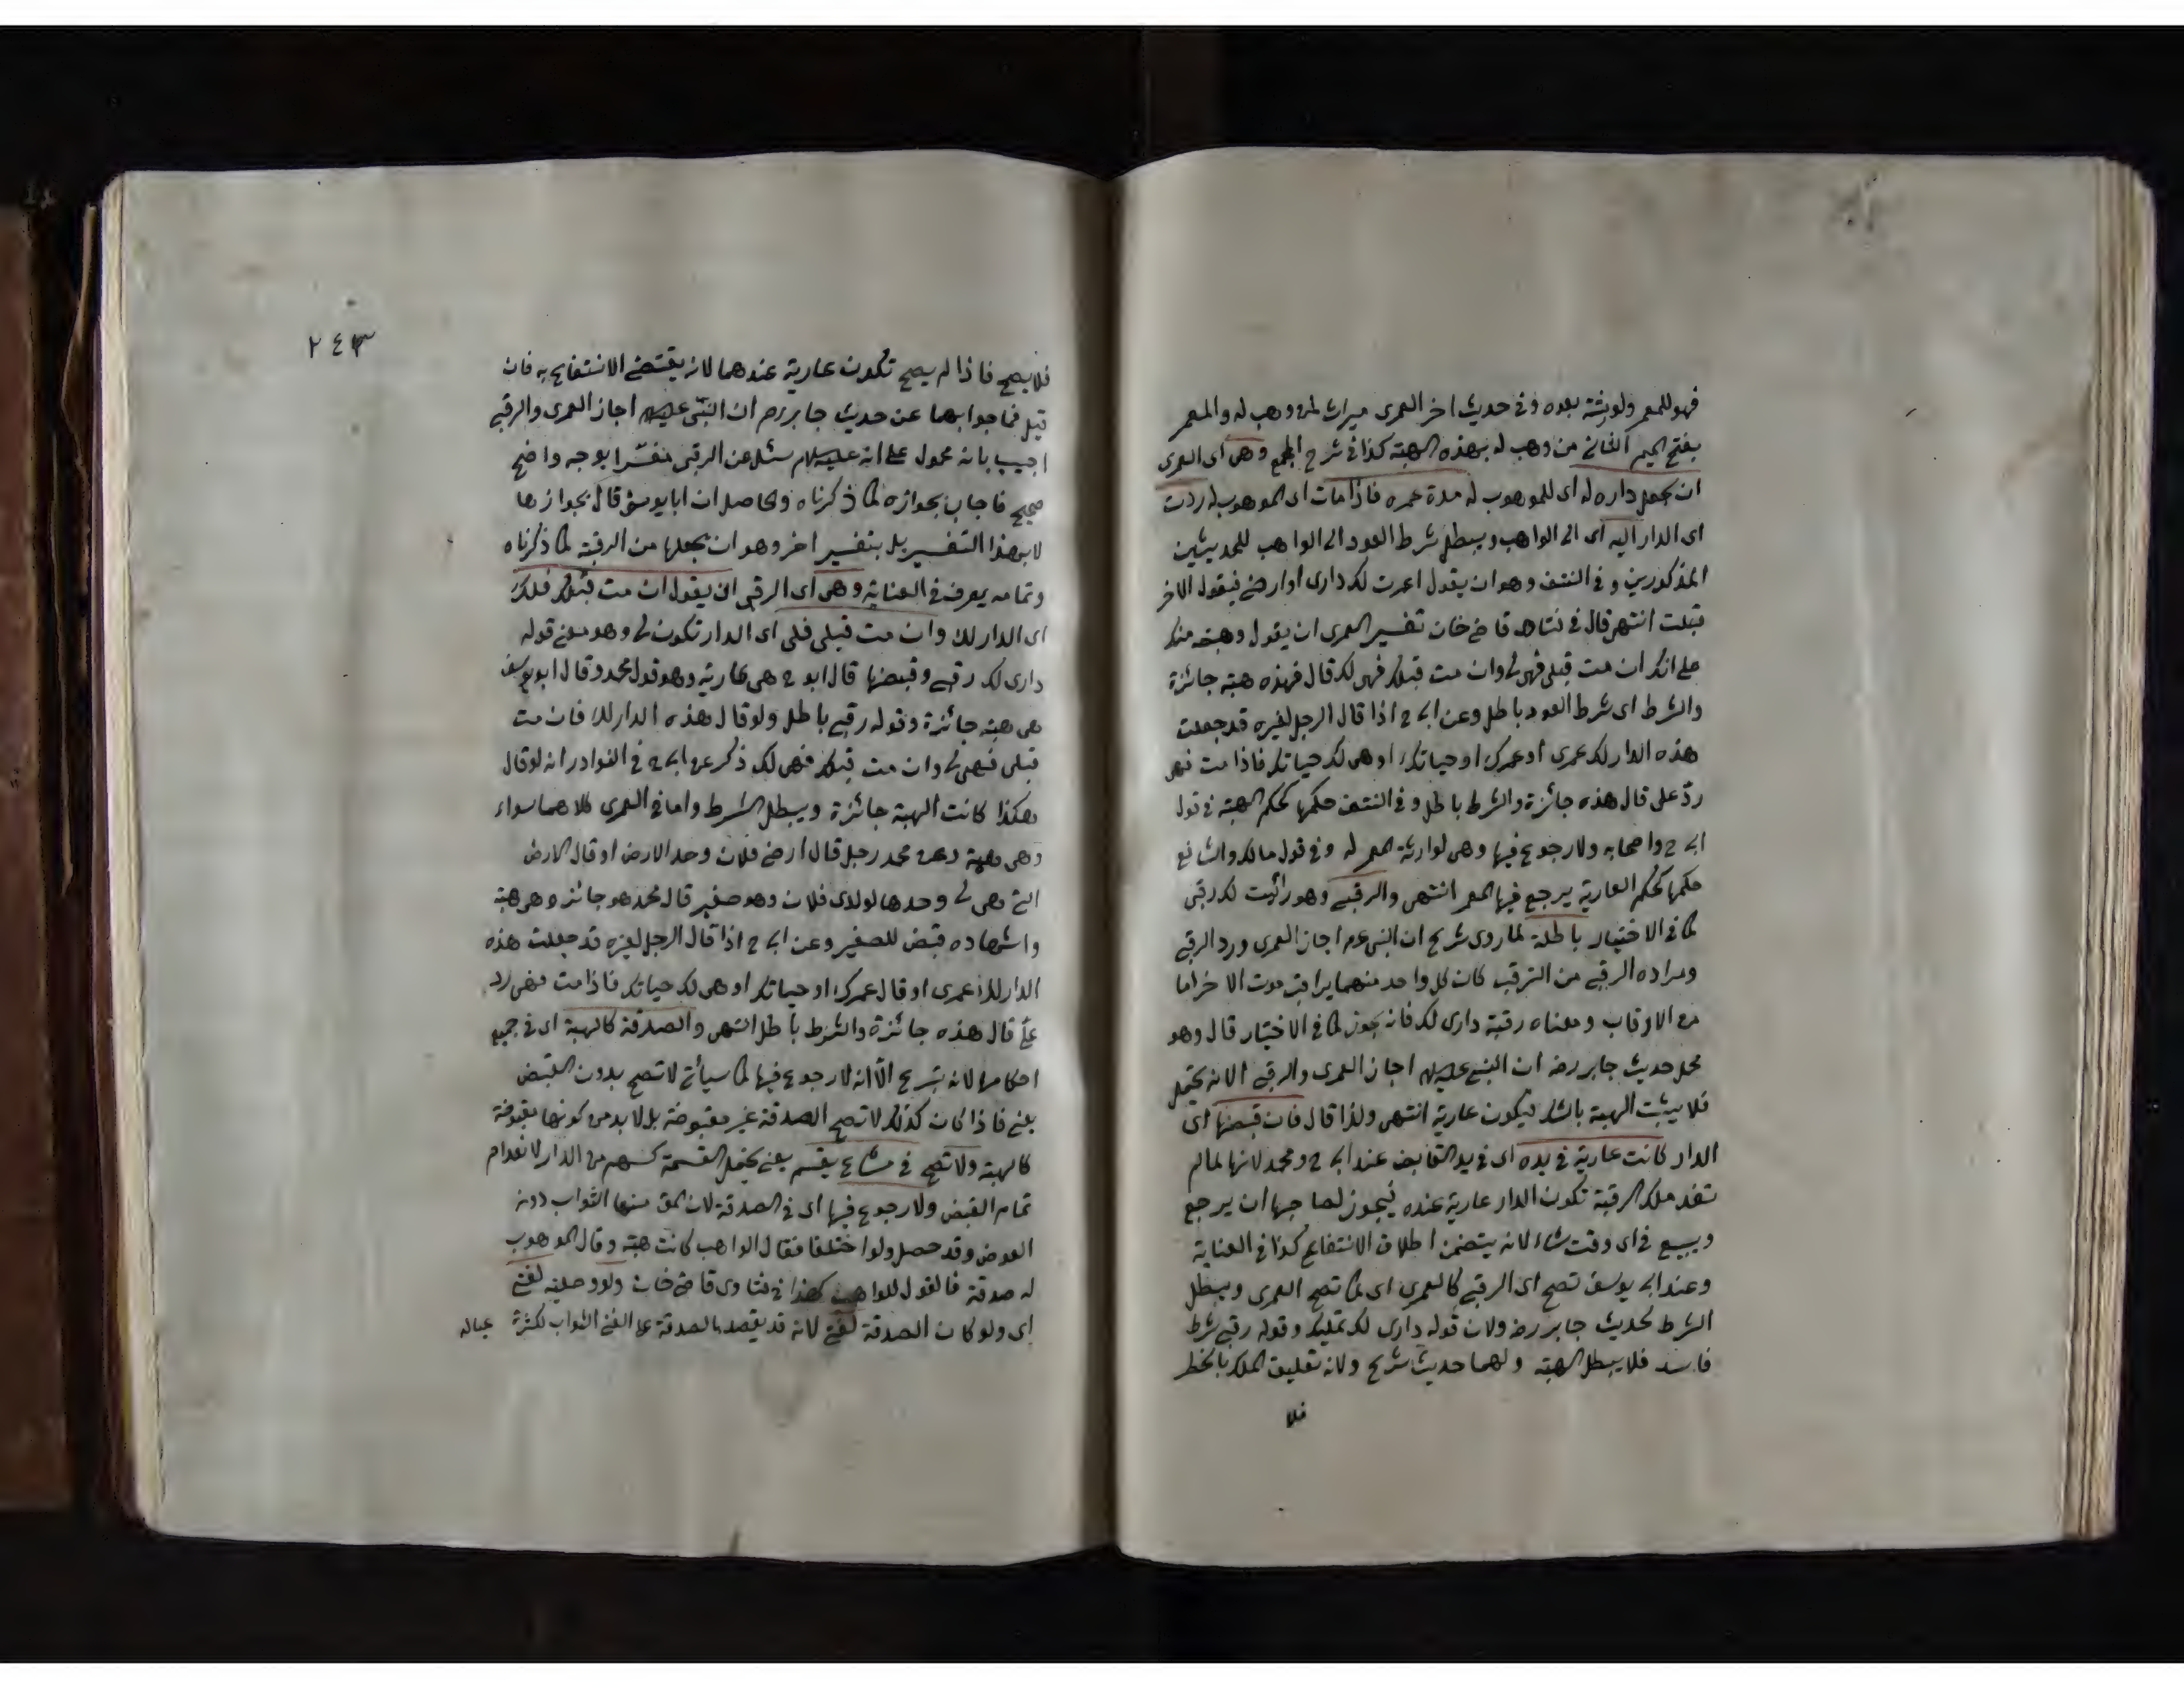 فهو للمعمر ولورثته بعده وفى حديث اخر العمرى ميراث لمن وهب له والمعمر
بفتح الميم الثانى من وهب له بهذه الهبة كذا فى شرح المجمع وهى اى العمرى
ان يجعل داره له اى للموهوب له مدة عمره فاذا مات اى الموهوب له ردت
اى الدار اليه اى الى الواهب ويبطل شرط العود الى الواهب للحديثين
المذكورين وفى النتف وهو ان يقول اعمرت لك دارى او ارضى فيقول الاخر
قبلت انتهى قال فى قاضى خان تفسير العمرى ان يقول وهبته منك
على انك ان مت قبلى فهى لى وان مت قبلك فهى لك قال فهذه هبة جائزة
والشرط اى شرط العود باطل وعن ابى ح اذا قال الرجل لغيره قد جعلت
هذه الدار لك عمرى او عمرك او حياتك او هى لك حياتك فاذا مت فهى
رد على قال هذه جائزة والشرط باطل وفى النتف حكمها كحكم الهبة فى قول
ابى ح واصحابه ولا رجوع فيها وهى لوارثة المعمر له وفى قول مالك والشافعى
حكمها كحكم العارية يرجع فيها المعمر انتهى والرقبى وهو لك رقبى
كما فى الاختيار باطلة لما روى شريح ان النبى عم اجاز العمرى ورد الرقبى
ومراده الرقبى من الترقب كان كل واحد منهما يراقب موت الاخر اما
من الارقاب ومعناه رقبة دارى لك فانه يجوز كما فى الاختيار قال وهو
محل حديث جابر رضه ان النبى عليه السلام اجاز العمرى والرقبى الا انه يحتمل
فلا يثبت الهبة بالشك فيكون عارية انتهى ولذا قال فان قبضها اى
الدار كانت عارية فى يده اى فى يد القابض عند ابى ح ومحمد لانها لما لم
تفد ملك الرقبة تكون الدار عارية عنده فيجوز لصاحبها ان يرجع
ويبيع فى اى وقت شاء لانه يتضمن اطلاق الانتفاع كذا فى العناية
وعند ابى يوسف تصح اى الرقبى كالعمرى اى كما تصح العمرى ويبطل
الشرط لحديث جابر رضه ولان قوله دارى لك تمليك وقوله رقبى شرط
فاسد فلا يبطل الهبة ولهما حديث شريح ولانه تعليق الملك بالخطر
فلا
٢٤٣
فلا يصح فاذا لم يصح تكون عارية عندهما لانه يقتضى الانتفاع به فان
قيل فما جوابهما عن حديث جابر رضه ان النبى عليه السلام اجاز العمرى والرقبى
اجيب بانه محمول على انه عليه السلام سئل عن الرقبى مفسرا بوجه واضح
صحيح فاجاب بجوازه كما ذكرناه والحاصل ان ابا يوسف قال بجوازها
لا بهذا التفسير بل بتفسير اخر وهو ان يجعلها من الرقبة كما ذكرناه
وتمامه يعرف فى العناية وهى اى الرقبى ان يقول ان مت قبلك فلك
اى الدار لك وان مت قبلى فلى اى الدار تكون لى وهو معنى قوله
دارى لك رقبى وقبضها قال ابو ح هى عارية وهو قول محمد وقال ابو يوسف
هى هبة جائزة وقوله رقبى باطل ولو قال هذه الدار لك فان مت
قبلى فهى لى وان مت قبلك فهى لك ذكر عن ابى ح فى النوادر انه لو قال
هكذا كانت الهبة جائزة ويبطل الشرط واما فى العمرى كلاهما سواء
وهى هبة وعن محمد رجل قال ارض فلان وحد الارض او قال الارض
التى هى لى وحدها لولدى فلان وهو صغير قال محمد هو جائز وهى هبة
واشهاده قبض للصغير وعن ابى ح اذا قال الرجل لغيره قد جعلت هذه
الدار لك عمرى او قال عمرك او حياتك او هى لك حياتك فاذا مت فهى رد
على قال هذه جائزة والشرط باطل انتهى والصدقة كالهبة اى فى جميع
احكامها لانه تبرع الا انه لا رجوع فيها كما سيأتى لا تصح بدون القبض
يعنى فاذا كان كذلك لا تصح الصدقة غير مقبوضة بل لا بد من كونها مقبوضة
كالهبة ولا تصح فى مشاع يقسم يعنى يحتمل القسمة كسهم من الدار لانعدام
تمام القبض ولا رجوع فيها اى فى الصدقة لان منها الثواب دون
العوض وقد حصل ولو اختلفا فقال الواهب كانت هبة وقال الموهوب
له صدقة فالقول للواهب كذا فى فتاوى قاضى خان ولو وصلية لغنى
اى ولو كان الصدقة لغنى لانه قد يقصد بالصدقة على الغنى الثواب لكثرة عياله